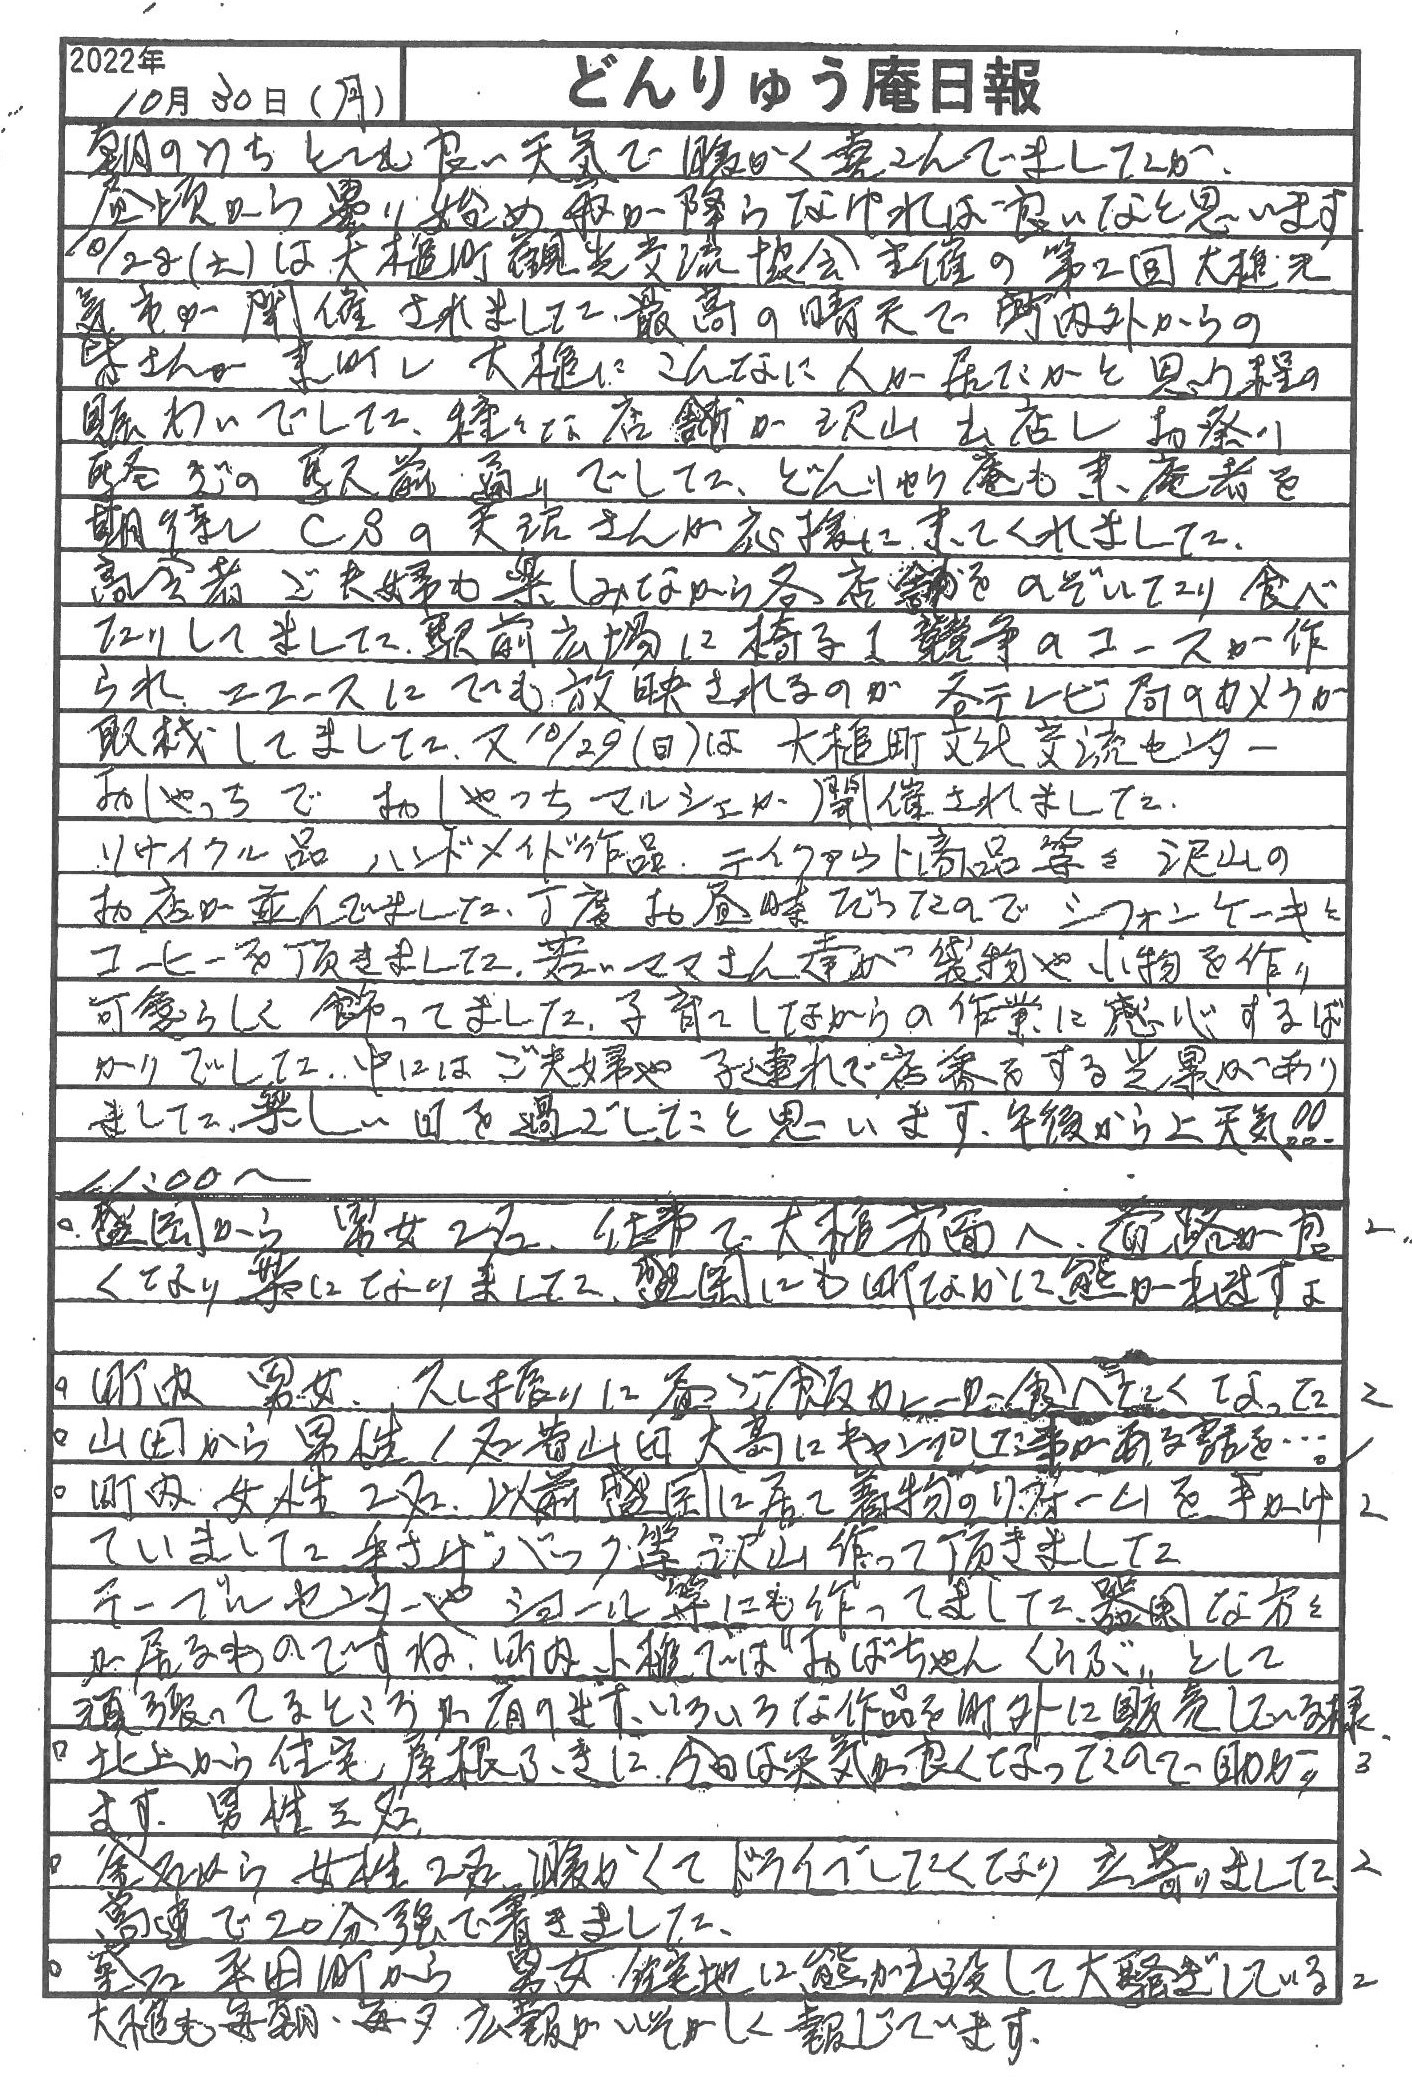 2022年
10月30日(月)
どんりゅう庵日報
朝のうちとても良い天気で暖かく喜こんでましたが、
昼頃から曇り始め 雨が降らなければ良いなと思います
10/28(土)は大槌町観光交流協会主催の第2回大槌元
気市が開催されました。最高の晴天で町内外からの
皆さんが来町し 大槌にこんなに人が居たかと思う程の
賑わいでした、種々な店舗が沢山出店しお祭り
騒ぎの駅前通りでした、どんりゅう庵も来庵者を
期待し CSの さんが応援に来てくれました、
高室者ご夫婦も楽しみながら各店舗をのぞいたり食べ
たりしてました、駅前広場に椅子 競争のコースが作
られ、ニュースにでも放映されるのか各テレビ局のカメラが
取材してました、又10/29(日)は大槌町文化交流センター
おしゃっちでおしゃっちマルシェが開催されました、
リサイクル品 ハンドメイド作品、テイクアウト商品等々沢山の
お店が並んでました、丁度お昼時だったのでシフォンケーキと
コーヒーを頂きました、若いママさん達が袋物や小物を作り
可愛らしく飾ってました、子育てしながらの作業に感心するば
かりでした、中にはご夫婦や子連れで店番をする光景があり
ました、楽しい日を過ごしたこと思います、午後から上天気!!
11:00〜
○盛岡から 男女2名、仕事で大槌方面へ、道路が良 2
くなり楽になりました、盛岡にも町なかに熊が来ますよ
○町内 男女、久し振りに昼ご飯カレーが食べたくなった 2
○山田から男性1名昔山田大島にキャンプした事がある話を… 1
○町内 女性2名、以前盛岡に居て着物のリホームを手がけ 2
ていました 手さげバック等沢山作って頂きました
テーブルセンターやショール等にも作ってました、器用な方々
が居るものですね、町内小槌では"おばちゃんくらぶ"として
頑張ってるところが有ります、いろいろな作品を町外に販売している様、
○北上から住宅屋根ふきに、今日は天気が良くなったので助かり 3
ます、男性三名
○釜石から 女性2名 暖かくてドライブしたくなり立寄りました、 2
高速で20分強で着きました、
○釜石平田町から 男女 住宅地に熊が出没して大騒ぎしている 2
大槌も毎朝・毎夕 広報がいそがしく報じています、